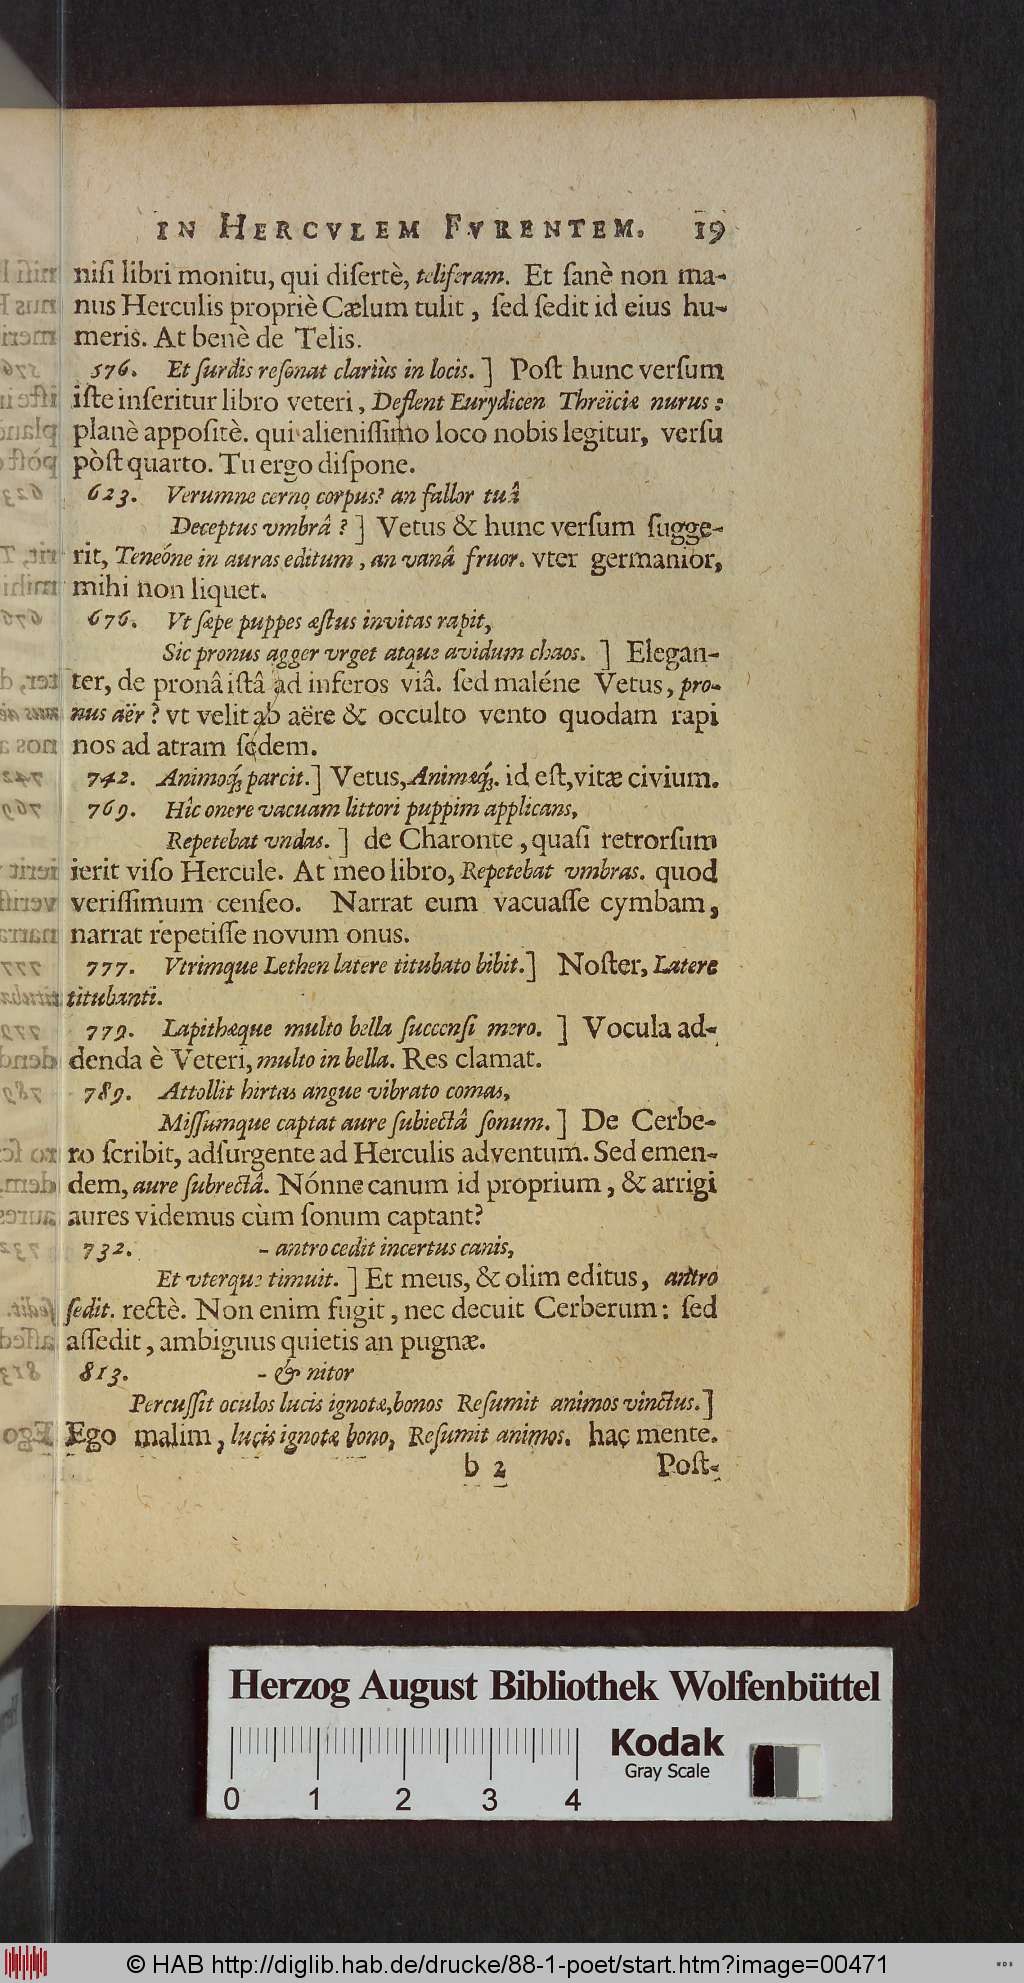 IN HERCVLEM FVRENTEM. 19
nisi libri monitu, qui disertè, teliferam. Et sanè non ma-
nus Herculis propriè Cælum tulit, sed sedit id eius hu-
meris. At benè de Telis.
576. Et surdis resonat clariùs in locis. ] Post hunc versum
iste inseritur libro veteri, Deflent Eurydicen Threïciæ nurus:
planè appositè. qui alienissimo loco nobis legitur, versu
pòst quarto. Tu ergo dispone.
623. Verumne cerno corpus? an fallor tuâ
Deceptus vmbrâ? ] Vetus & hunc versum sugge-
rit, Teneóne in auras editum, an vanâ fruor. vter germanior,
mihi non liquet.
676. Vt sæpe puppes æstus invitas rapit,
Sic pronus agger vrget atque avidum chaos. ] Elegan-
ter, de pronâ istâ ad inferos viâ. sed maléne Vetus, pro-
nus aër? vt velit ab aëre & occulto vento quodam rapi
nos ad atram sedem.
742. Animoq; parcit. ] Vetus, Animæq;. id est, vitæ civium.
769. Hîc onere vacuam littori puppim applicans,
Repetebat vndas. ] de Charonte, quasi retrorsum
ierit viso Hercule. At meo libro, Repetebat vmbras. quod
verissimum censeo. Narrat eum vacuasse cymbam,
narrat repetisse novum onus.
777. Vtrimque Lethen latere titubato bibit. ] Noster, Latere
titubanti.
779. Lapithæque multo bella succensi mero. ] Vocula ad-
denda è Veteri, multo in bella. Res clamat.
789. Attollit hirtas angue vibrato comas,
Missumque captat aure subiectâ sonum. ] De Cerbe-
ro scribit, adsurgente ad Herculis adventum. Sed emen-
dem, aure subrectâ. Nónne canum id proprium, & arrigi
aures videmus cùm sonum captant?
732. - antro cedit incertus canis,
Et vterque timuit. ] Et meus, & olim editus, antro
sedit. rectè. Non enim fugit, nec decuit Cerberum: sed
assedit, ambiguus quietis an pugnæ.
813. - & nitor
Percussit oculos lucis ignotæ, bonos Resumit animos vinctus. ]
Ego malim, lucis ignotæ bono, Resumit animos. hac mente.
b 2 Post-
Herzog August Bibliothek Wolfenbüttel
Kodak
Gray Scale
0 1 2 3 4
© HAB http://diglib.hab.de/drucke/88-1-poet/start.htm?image=00471